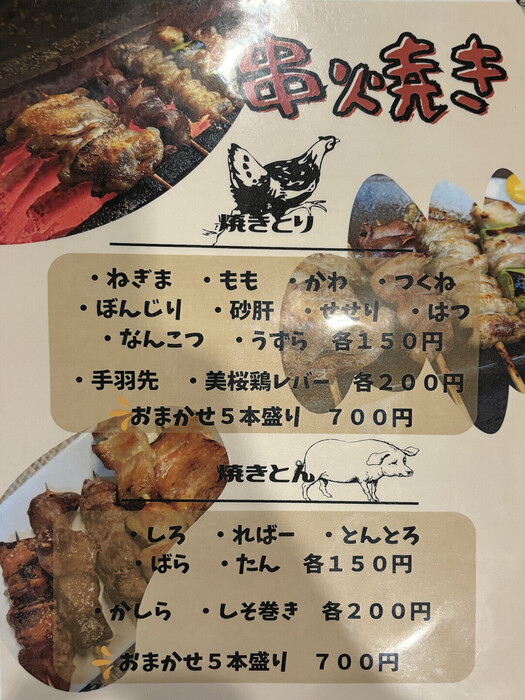 串火焼き
焼きとり
・ねぎま ・もも ・かわ ・つくね
・ぼんじり ・砂肝 ・せせり ・はつ
・なんこつ ・うずら 各150円
・手羽先 ・美桜鶏レバー 各200円
おまかせ5本盛り 700円
焼きとん
・しろ ・ればー ・とんとろ
・ばら ・たん 各150円
・かしら ・しそ巻き 各200円
おまかせ5本盛り 700円